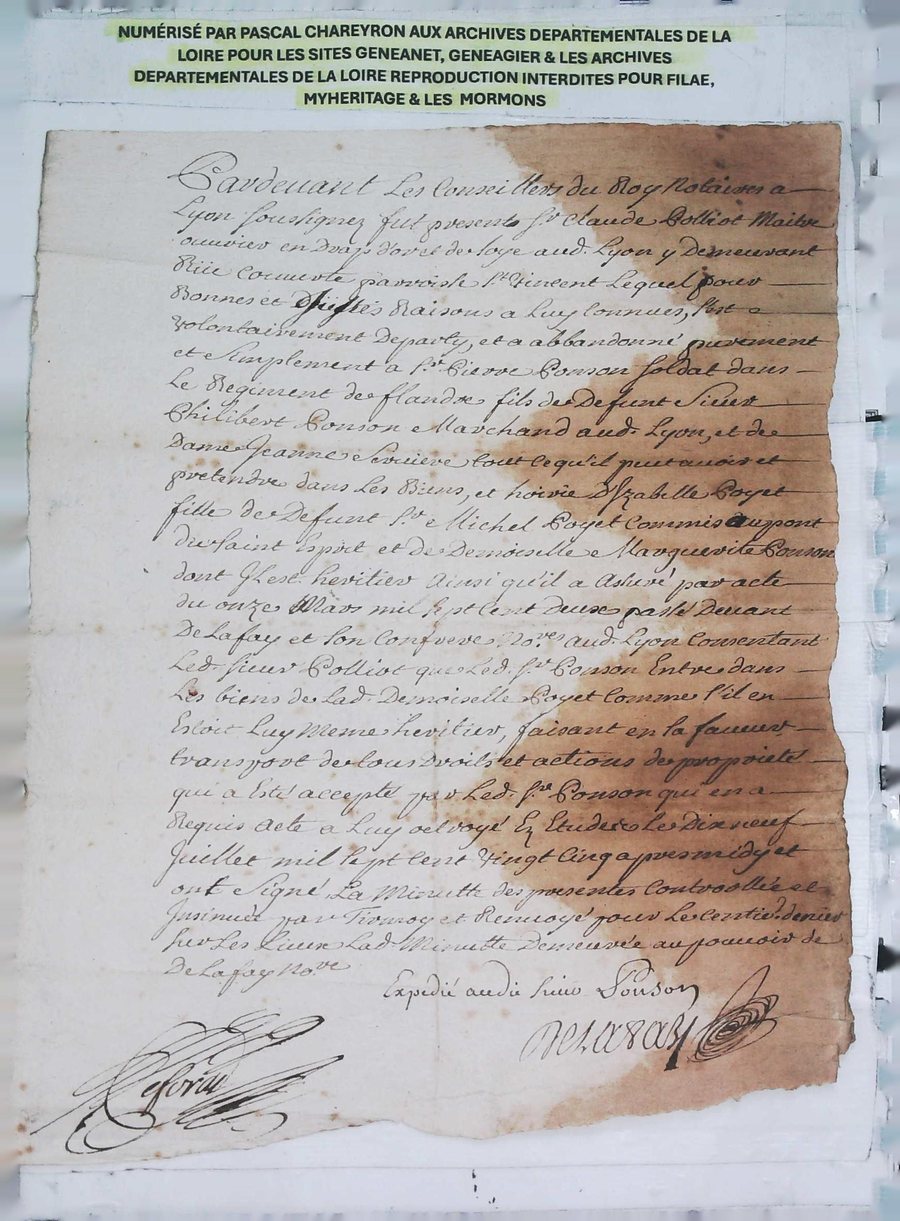 NUMÉRISÉ PAR PASCAL CHAREYRON AUX ARCHIVES DEPARTEMENTALES DE LA
LOIRE POUR LES SITES GENEANET, GENEAGIER & LES ARCHIVES
DEPARTEMENTALES DE LA LOIRE REPRODUCTION INTERDITES POUR FILAE,
MYHERITAGE & LES MORMONS
Pardevant Les Conseillers du Roy Notaires a
Lyon soussignez fut present Sr. Claude Polliot Maitre
ouvrier en Drap d'or et de soye aud. Lyon y Demeurant
Rüe couverte parroisse St. Vincent Lequel pour
Bonnes et Justes Raisons a Luy Connues, s'est
volontairement Deparly, et a abbandonné purement
et Simplement a Sr. Pierre Ponson Soldat dans
Le Regiment de flandre fils de Defunt Sieur
Philibert Ponson Marchand aud. Lyon, et de
Dame Jeanne Seruiere tout ce qu'il peut avoir et
pretendre dans Les Biens, et hoirie D'Izabelle Poyet
fille de Defunt Sr. Michel Poyet Commis au pont
du Saint Esprit et de Demoiselle Marguerite Ponson
dont Il est heritier Ainsi qu'il a Assuré par acte
du onze Mars mil sept cent deux passé Devant
DeLafay et son Confrere Nores. aud. Lyon Consentant
Led. Sieur Polliot que Led. Sr. Ponson Entre dans
Les biens de Lad. Demoiselle Poyet Comme s'il en
Estoit Luy Meme heritier, faisant en sa faveur
transport de tous Droits et actions de proprieté
qui a Esté accepté par Led. Sr. Ponson qui en a
Requis Acte a Luy octroyé Ez Etudes Le Dixneuf
Juillet mil sept Cent Vingt Cinq apres midy et
ont Signé La Minutte des presentes Controollée et
Insinuée par et Renvoyé pour Le Centie. denier
sur Les Lieux Lad. Minutte Demeurée au pouvoir de
DeLafay Nore.
Expedié audit Sieur Ponson
DELAFAY